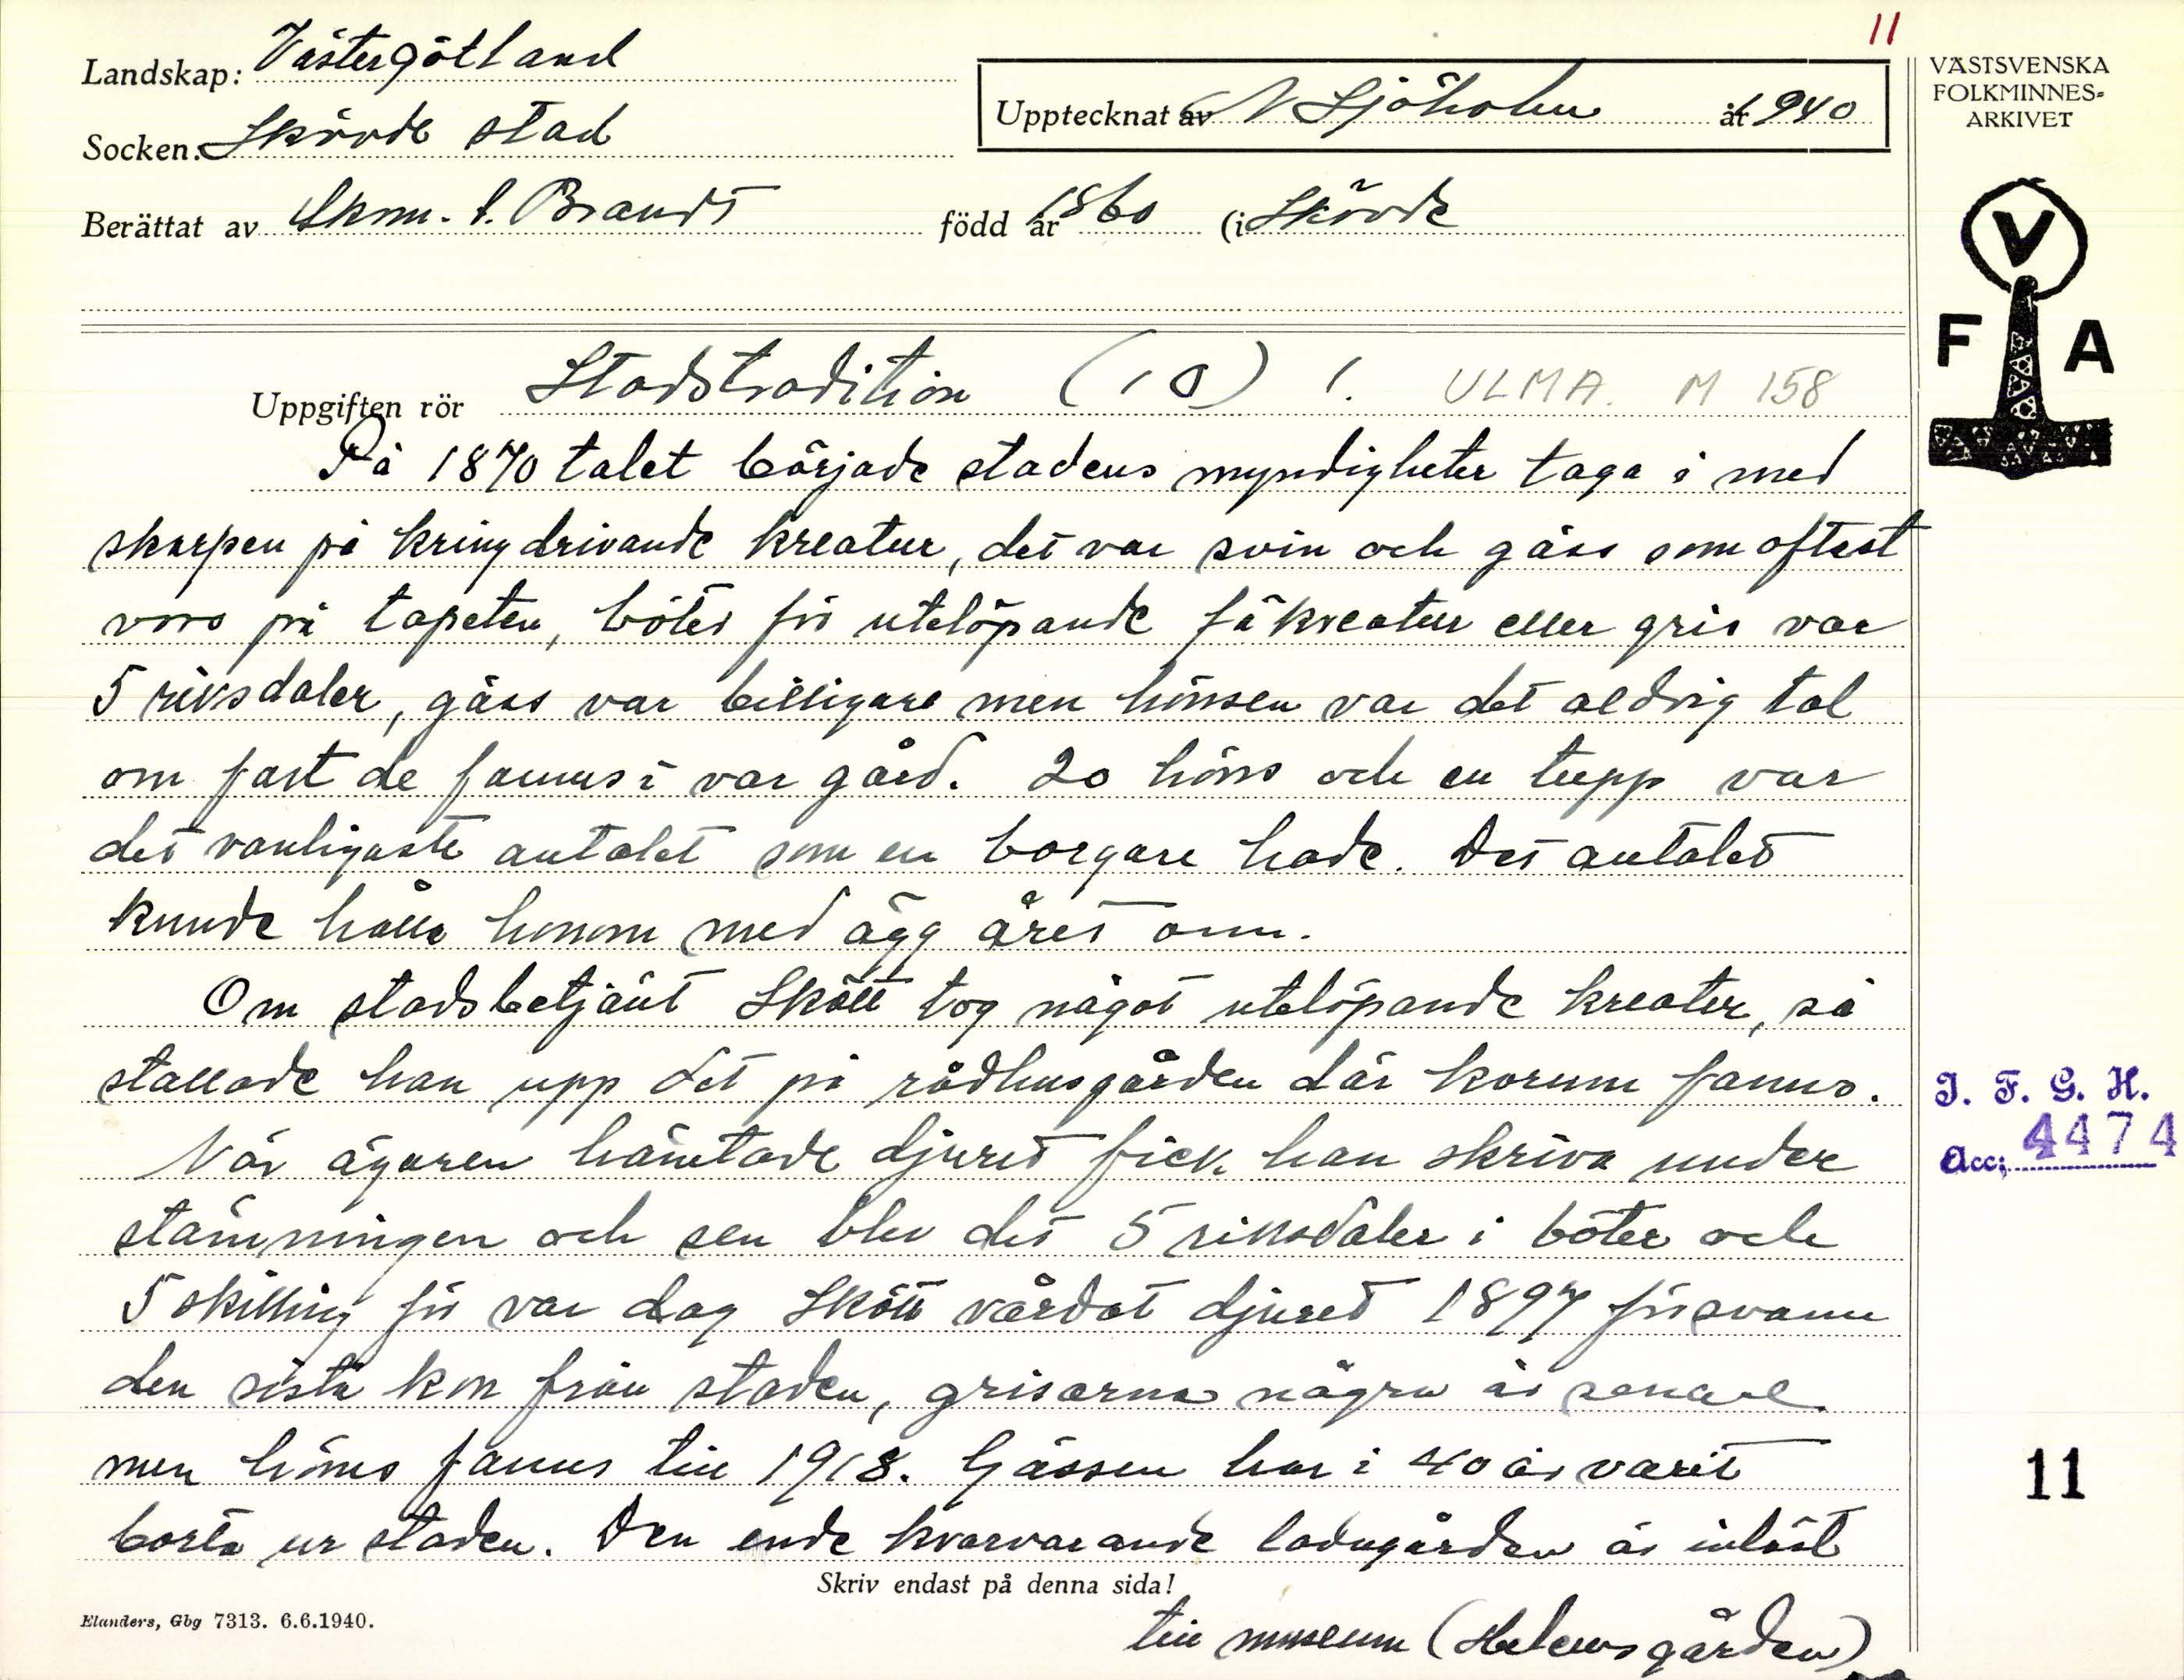 11
Landskap: Västergötland
Socken: Skövde stad
Upptecknat av N Sjöholm år 1940
Berättat av Skm. f. Brandt född år 1860 (i Skövde
VÄSTSVENSKA
FOLKMINNES=
ARKIVET
V
F A
Uppgiften rör Stadstradition (10) 1. ULMA. M 158
På 1870 talet började stadens myndigheter taga i med
skarpen på kringdrivande kreatur, det var svin och gäss som oftast
voro på tapeten, böter för utelöpande fäkreatur eller gris var
5 riksdaler, gäss var billigare men hönsen var det aldrig tal
om fast de fanns i var gård. 20 höns och en tupp var
det vanligaste antalet som en borgare hade. Det antalet
kunde hålla honom med ägg året om.
Om stadsbetjänt Skött tog något utelöpande kreatur, så
stallade han upp det på rådhusgården där korum fanns.
När ägaren hämtade djuret fick han skriva under
stämningen och sen blev det 5 riksdaler i böter och
5 skilling för var dag Skött vårdat djuret 1897 försvann
den sista kon från staden, grisarna några år senare
men höns fanns till 1918. Gässen har i 40 år varit
borta ur staden. Den ende kvarvarande ladugården är inlöst
till museum (Helensgården)
Skriv endast på denna sida!
Elanders, Gbg 7313. 6.6.1940.
I. F. G. H.
Acc: 4474
11